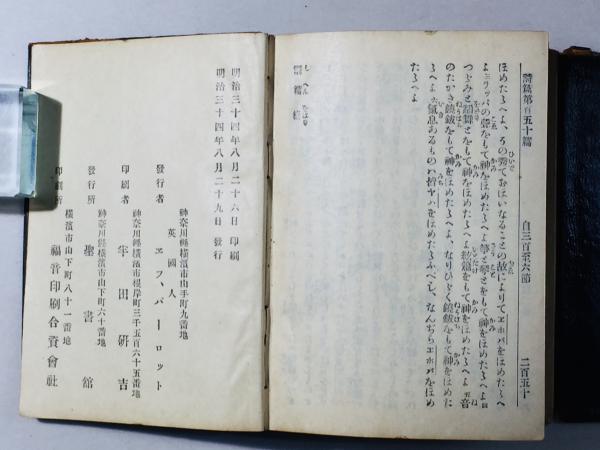 詩篇第百五十篇
自三百至六節
二百五十
ほめたゝへよ、その秀ておほいなることの故によりてヱホバをほめたゝへ
よ 三 ラッパの聲をもて神をほめたゝへよ筝と琴とをもて神をほめたゝへよ 四
つゞみと蹈舞とをもて神をほめたゝへよ絃簫をもて神をほめたゝへよ 五 音
のたかき鐃鈸をもて神をほめたゝへよ、なりひゞく鐃鈸をもて神をほめた
ゝへよ 六 氣息あるものハ皆ヤハをほめたゝふべし、なんぢらヱホバをほめ
たゝへよ
詩篇 終
明治三十四年八月二十六日 印刷
明治三十四年八月二十九日 發行
神奈川縣横濱市山手町九番地
英國人
發行者 ヱフ、パーロット
神奈川縣横濱市根岸町三千五百六十五番地
印刷者 牢田研吉
神奈川縣横濱市山下町六十番地
發行所 聖書館
横濱市山下町八十一番地
印刷所 福音印刷合資會社